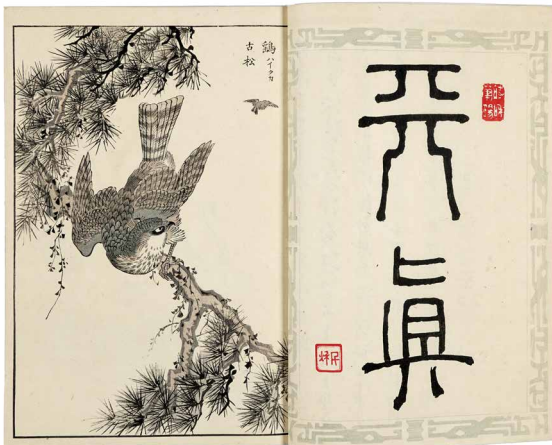 天
眞
鷂 ハイタカ
古松